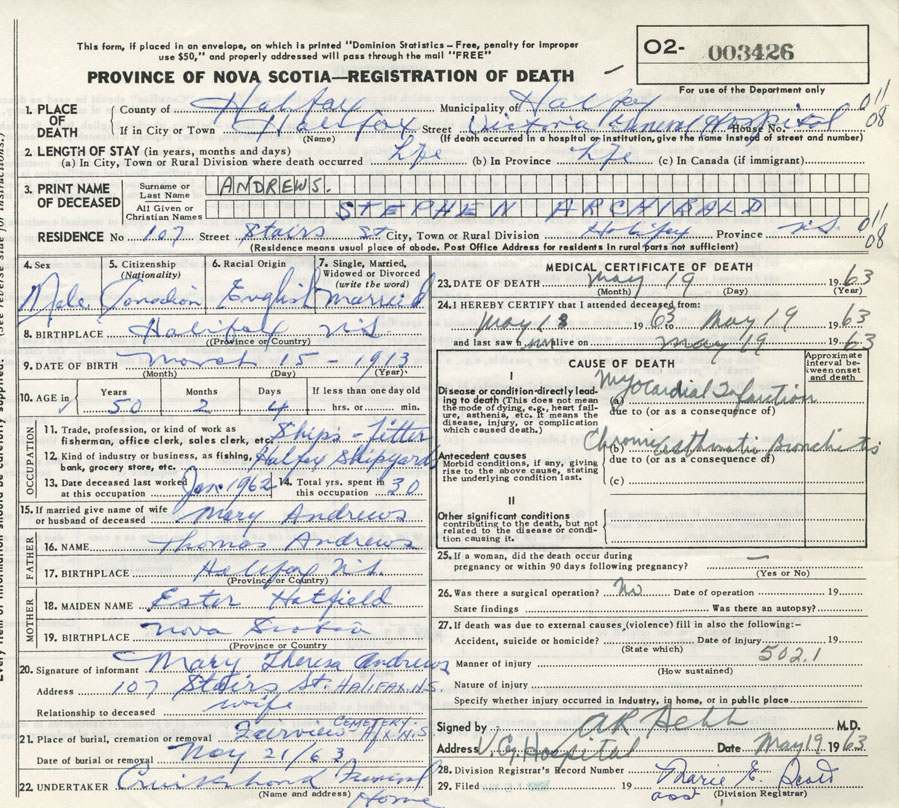 This form, if placed in an envelope, on which is printed "Dominion Statistics – Free, penalty for improper
use $50," and properly addressed will pass through the mail "FREE"
O2- 003426
PROVINCE OF NOVA SCOTIA—REGISTRATION OF DEATH
For use of the Department only
1. PLACE OF DEATH County of Halifax Municipality of Halifax 011
If in City or Town Halifax Street Victoria General Hospital House No. 08
(Name) (If death occurred in a hospital or institution, give the name instead of street and number)
2. LENGTH OF STAY (in years, months and days)
(a) In City, Town or Rural Division where death occurred Life (b) In Province Life (c) In Canada (if immigrant)
3. PRINT NAME OF DECEASED Surname or Last Name ANDREWS.
All Given or Christian Names STEPHEN ARCHIBALD
RESIDENCE No 107 Street Stairs St City, Town or Rural Division Halifax Province N.S. 011 08
(Residence means usual place of abode. Post Office Address for residents in rural parts not sufficient)
4. Sex 5. Citizenship (Nationality) 6. Racial Origin 7. Single, Married, Widowed or Divorced (write the word)
Male Canadian English Married
8. BIRTHPLACE Halifax N.S.
(Province or Country)
9. DATE OF BIRTH March 15 - 1913
(Month) (Day) (Year)
10. AGE in Years Months Days If less than one day old
50 2 4 hrs. or min.
OCCUPATION
11. Trade, profession, or kind of work as fisherman, office clerk, sales clerk, etc. Ships - Fitter
12. Kind of industry or business, as fishing, bank, grocery store, etc. Halifax Shipyards
13. Date deceased last worked at this occupation Jan 1962 14. Total yrs. spent in this occupation 30
15. If married give name of wife or husband of deceased Mary Andrews
FATHER
16. NAME Thomas Andrews
17. BIRTHPLACE Halifax N.S.
(Province or Country)
MOTHER
18. MAIDEN NAME Ester Hatfield
19. BIRTHPLACE Nova Scotia
(Province or Country)
20. Signature of informant Mary Theresa Andrews
Address 107 Stairs St. HALIFAX. N.S.
Relationship to deceased wife
21. Place of burial, cremation or removal Fairview CEMETERY Hfx N.S.
Date of burial or removal May 21/63
22. UNDERTAKER Cruikshank Funeral Home
(Name and address)
MEDICAL CERTIFICATE OF DEATH
23. DATE OF DEATH May 19 1963
(Month) (Day) (Year)
24. I HEREBY CERTIFY that I attended deceased from:
May 18 1963 to May 19 1963
and last saw him alive on May 19 1963
CAUSE OF DEATH
Approximate interval between onset and death
I
Disease or condition directly leading to death (This does not mean the mode of dying, e.g., heart failure, asthenia, etc. It means the disease, injury, or complication which caused death.)
(a) Myocardial Infarction
due to (or as a consequence of)
Antecedent causes
Morbid conditions, if any, giving rise to the above cause, stating the underlying condition last.
(b) Chronic asthmatic Bronchitis
due to (or as a consequence of)
(c)
II
Other significant conditions
contributing to the death, but not related to the disease or condition causing it.
25. If a woman, did the death occur during pregnancy or within 90 days following pregnancy? —
(Yes or No)
26. Was there a surgical operation? No Date of operation 19
State findings Was there an autopsy?
27. If death was due to external causes (violence) fill in also the following:–
Accident, suicide or homicide? Date of injury 19
(State which)
Manner of injury 502.1
(How sustained)
Nature of injury
Specify whether injury occurred in industry, in home, or in public place
Signed by M.D.
Address V.G. Hospital Date May 19 1963
28. Division Registrar's Record Number
29. Filed 19 Marie E.
(Division Registrar)